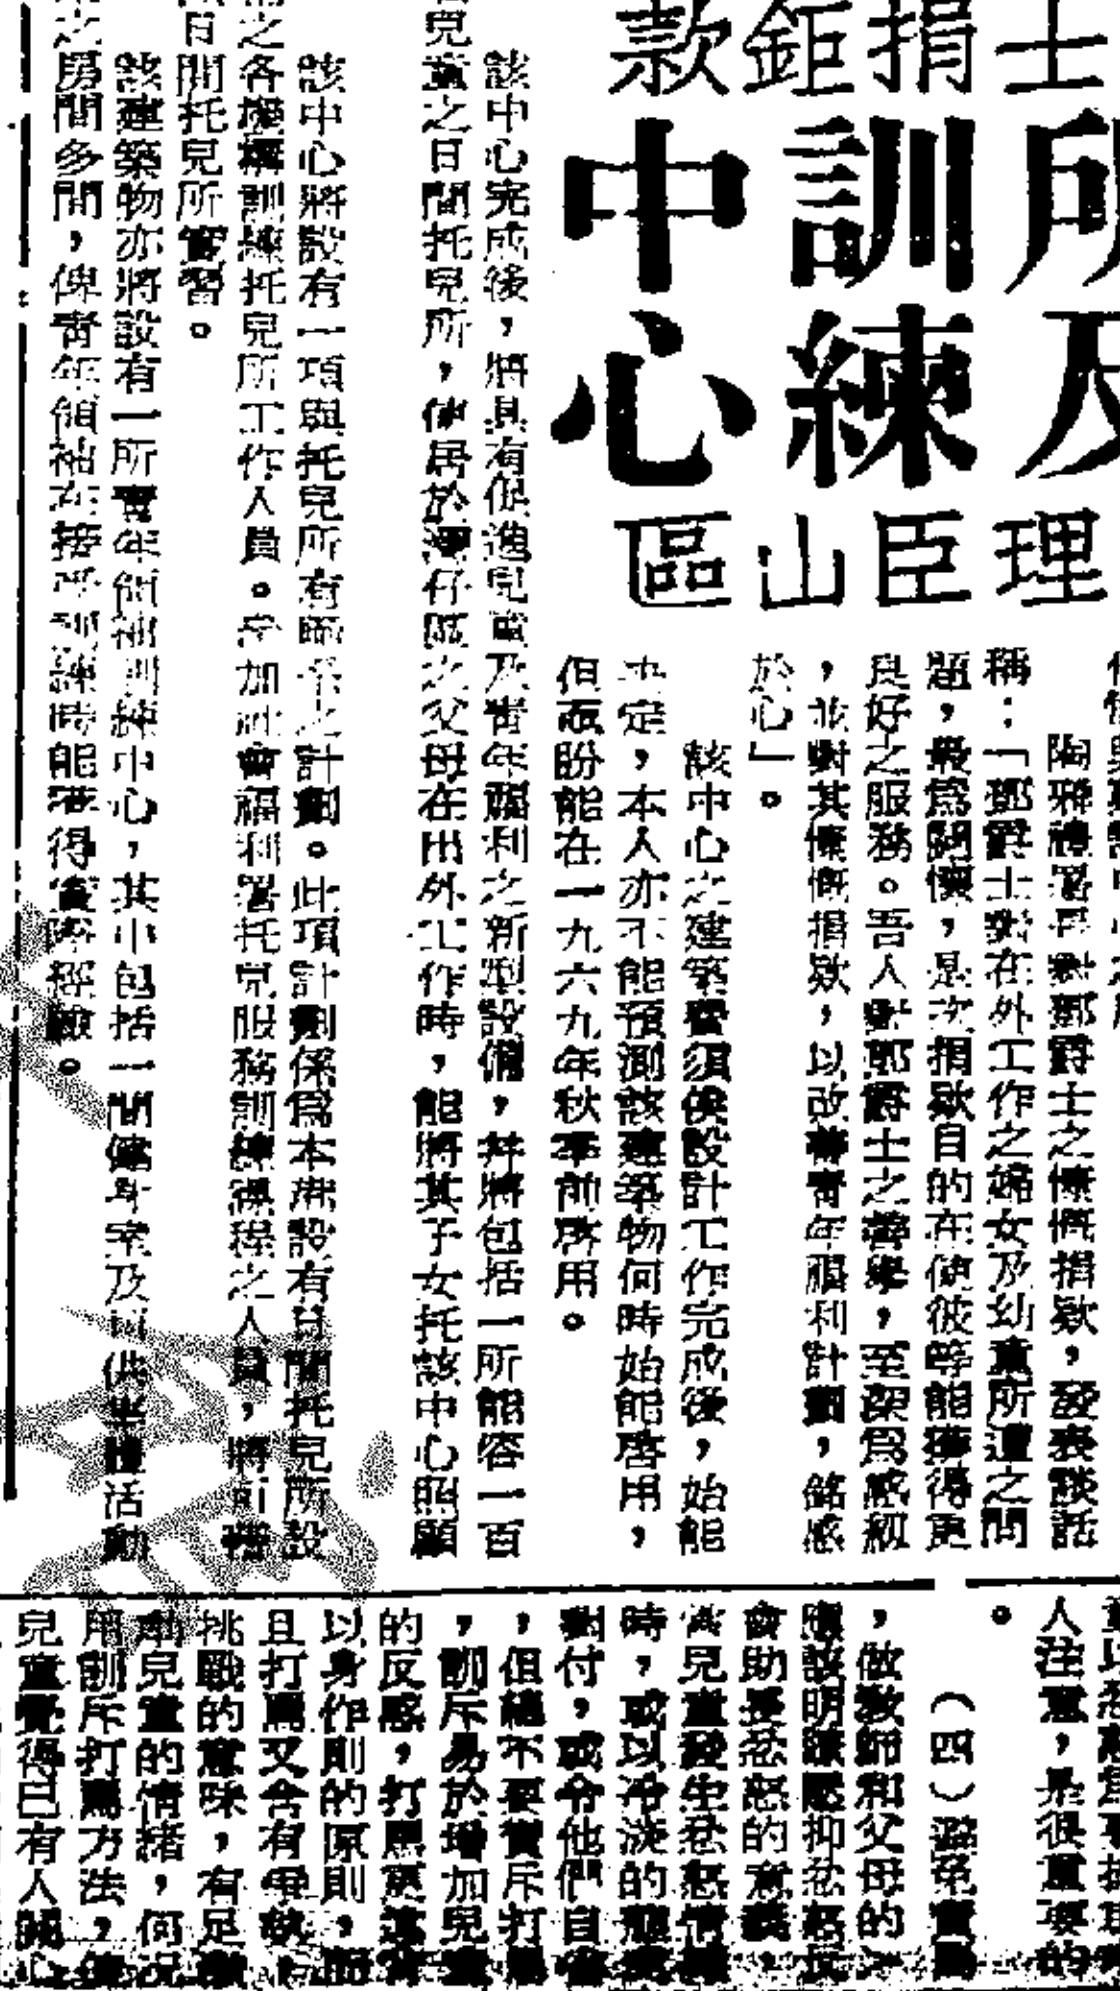 士捐鉅款
所及
訓練
中心
理臣山區
陶雅禮署長對鄧爵士之慷慨捐欵，發表談話
稱：「鄧爵士對在外工作之婦女及幼童所遭之問
題，最爲關懷，是次捐欵目的在使彼等能獲得更
良好之服務。吾人對鄧爵士之善舉，至深爲感級
，並對其慷慨捐欵，以改善青年福利計劃，銘感
於心」。
該中心之建築費須俟設計工作完成後，始能
決定，本人亦不能預測該建築物何時始能啓用，
但亟盼能在一九六九年秋季前啓用。
該中心完成後，將具有促進兒童及青年福利之新型設備，并將包括一所能容一百
兒童之日間托兒所，俾居於灣仔區之父母在出外工作時，能將其子女托該中心照顧
該中心將設有一項與托兒所有關之計劃。此項計劃係爲本港設有日間托兒所設
之各機構訓練托兒所工作人員。參加社會福利署托兒服務訓練課程之人員，將可
日間托兒所實習。
該建築物亦將設有一所青年領袖訓練中心，其中包括一間健身室及可供集體活動
之房間多間，俾青年領袖在接受訓練時能獲得實際經驗。
人注意，是很重要的
。
（四）避免責罵
，做教師和父母的
應該明瞭壓抑忿怒
會助長忿怒的意義，
當兒童發生忿怒情
時，或以冷淡的態度
對付，或令他們自
，但絕不要責斥打
，訓斥易於增加兒童
的反感，打罵更
以身作則的原則，而
且打罵又含有
挑戰的意味，有足
兒童的情緒，何況
用訓斥打罵方法，使
兒童覺得已有人關心